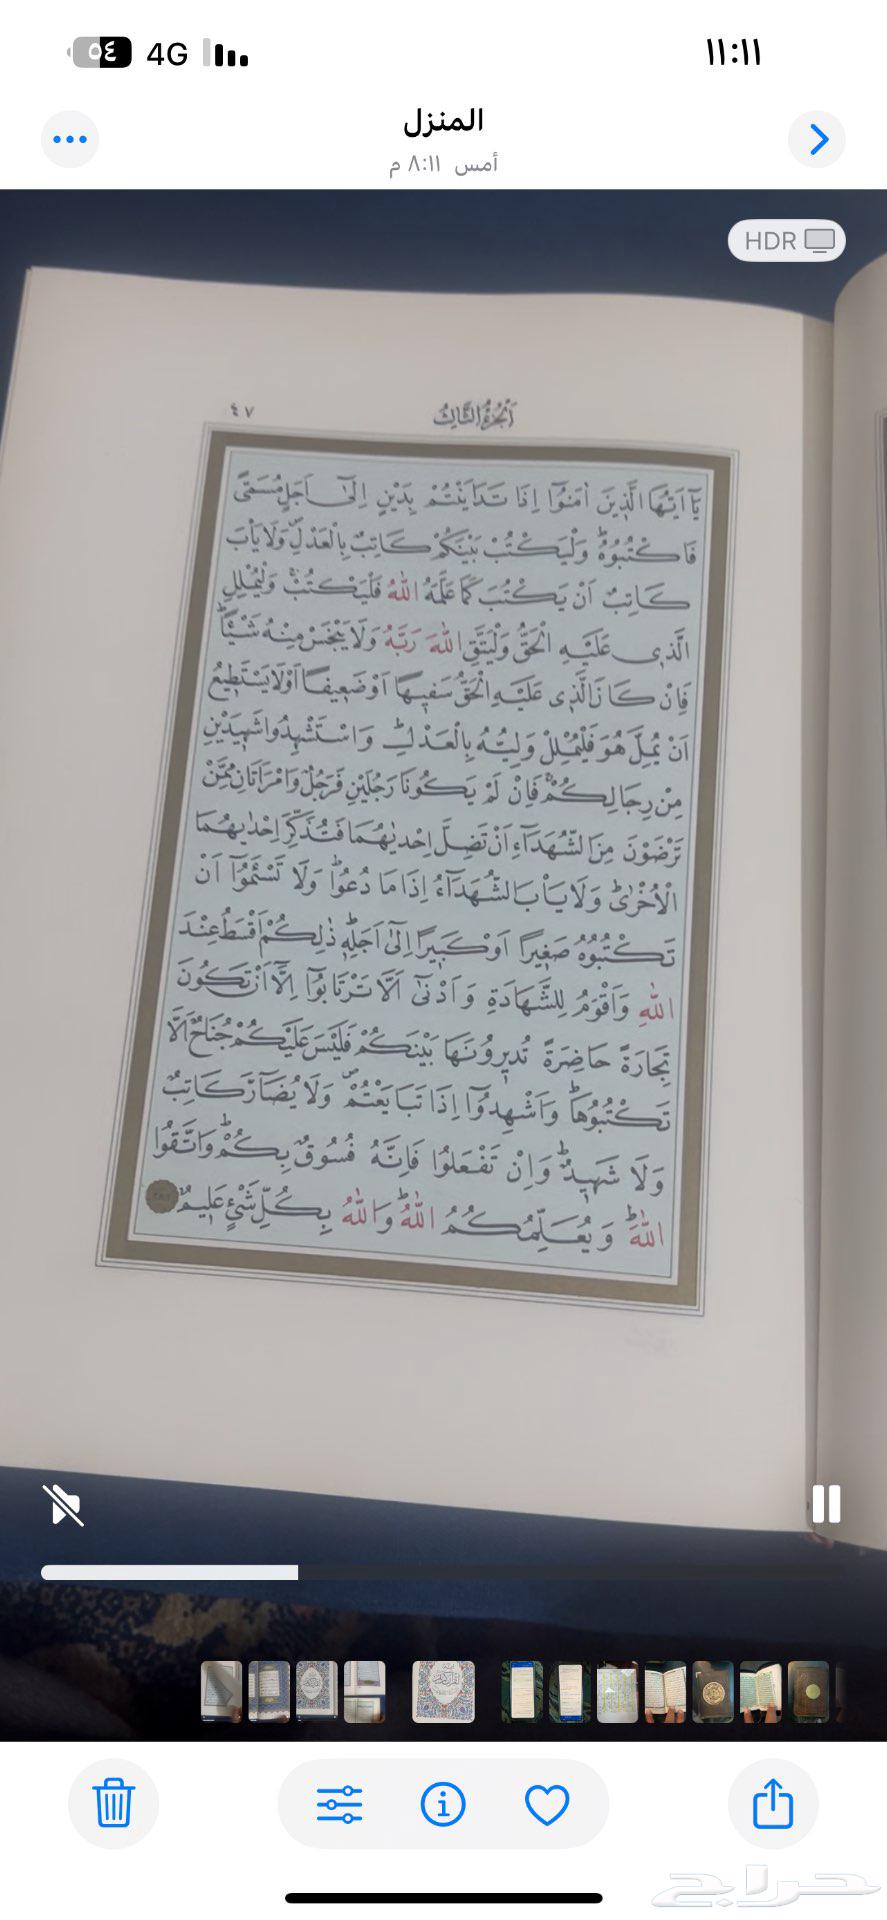 ١١:١١
4G
٥٤
المنزل
أمس ٨:١١ م
HDR
اَلْجُزْءُ الثَّالِثُ
٤٧
يَٓا اَيُّهَا الَّذ۪ينَ اٰمَنُٓوا اِذَا تَدَايَنْتُمْ بِدَيْنٍ اِلٰٓى اَجَلٍ مُسَمًّى
فَاكْتُبُوهُۜ وَلْيَكْتُبْ بَيْنَكُمْ كَاتِبٌ بِالْعَدْلِۖ وَلَا يَأْبَ
كَاتِبٌ اَنْ يَكْتُبَ كَمَا عَلَّمَهُ اللّٰهُ فَلْيَكْتُبْۚ وَلْيُمْلِلِ
الَّذ۪ي عَلَيْهِ الْحَقُّ وَلْيَتَّقِ اللّٰهَ رَبَّهُ وَلَا يَبْخَسْ مِنْهُ شَيْـًٔاۜ
فَاِنْ كَانَ الَّذ۪ي عَلَيْهِ الْحَقُّ سَف۪يهًا اَوْ ضَع۪يفًا اَوْ لَا يَسْتَط۪يعُ
اَنْ يُمِلَّ هُوَ فَلْيُمْلِلْ وَلِيُّهُ بِالْعَدْلِۜ وَاسْتَشْهِدُوا شَه۪يدَيْنِ
مِنْ رِجَالِكُمْۚ فَاِنْ لَمْ يَكُونَا رَجُلَيْنِ فَرَجُلٌ وَامْرَاَتَانِ مِمَّنْ
تَرْضَوْنَ مِنَ الشُّهَدَٓاءِ اَنْ تَضِلَّ اِحْدٰيهُمَا فَتُذَكِّرَ اِحْدٰيهُمَا
الْاُخْرٰىۜ وَلَا يَأْبَ الشُّهَدَٓاءُ اِذَا مَا دُعُواۜ وَلَا تَسْـَٔمُٓوا اَنْ
تَكْتُبُوهُ صَغ۪يرًا اَوْ كَب۪يرًا اِلٰٓى اَجَلِه۪ۜ ذٰلِكُمْ اَقْسَطُ عِنْدَ
اللّٰهِ وَاَقْوَمُ لِلشَّهَادَةِ وَاَدْنٰٓى اَلَّا تَرْتَابُٓوا اِلَّٓا اَنْ تَكُونَ
تِجَارَةً حَاضِرَةً تُد۪يرُونَهَا بَيْنَكُمْ فَلَيْسَ عَلَيْكُمْ جُنَاحٌ اَلَّا
تَكْتُبُوهَاۜ وَاَشْهِدُٓوا اِذَا تَبَايَعْتُمْۖ وَلَا يُضَٓارَّ كَاتِبٌ
وَلَا شَه۪يدٌۜ وَاِنْ تَفْعَلُوا فَاِنَّهُ فُسُوقٌ بِكُمْۜ وَاتَّقُوا
اللّٰهَۜ وَيُعَلِّمُكُمُ اللّٰهُۜ وَاللّٰهُ بِكُلِّ شَيْءٍ عَل۪يمٌ
حراج